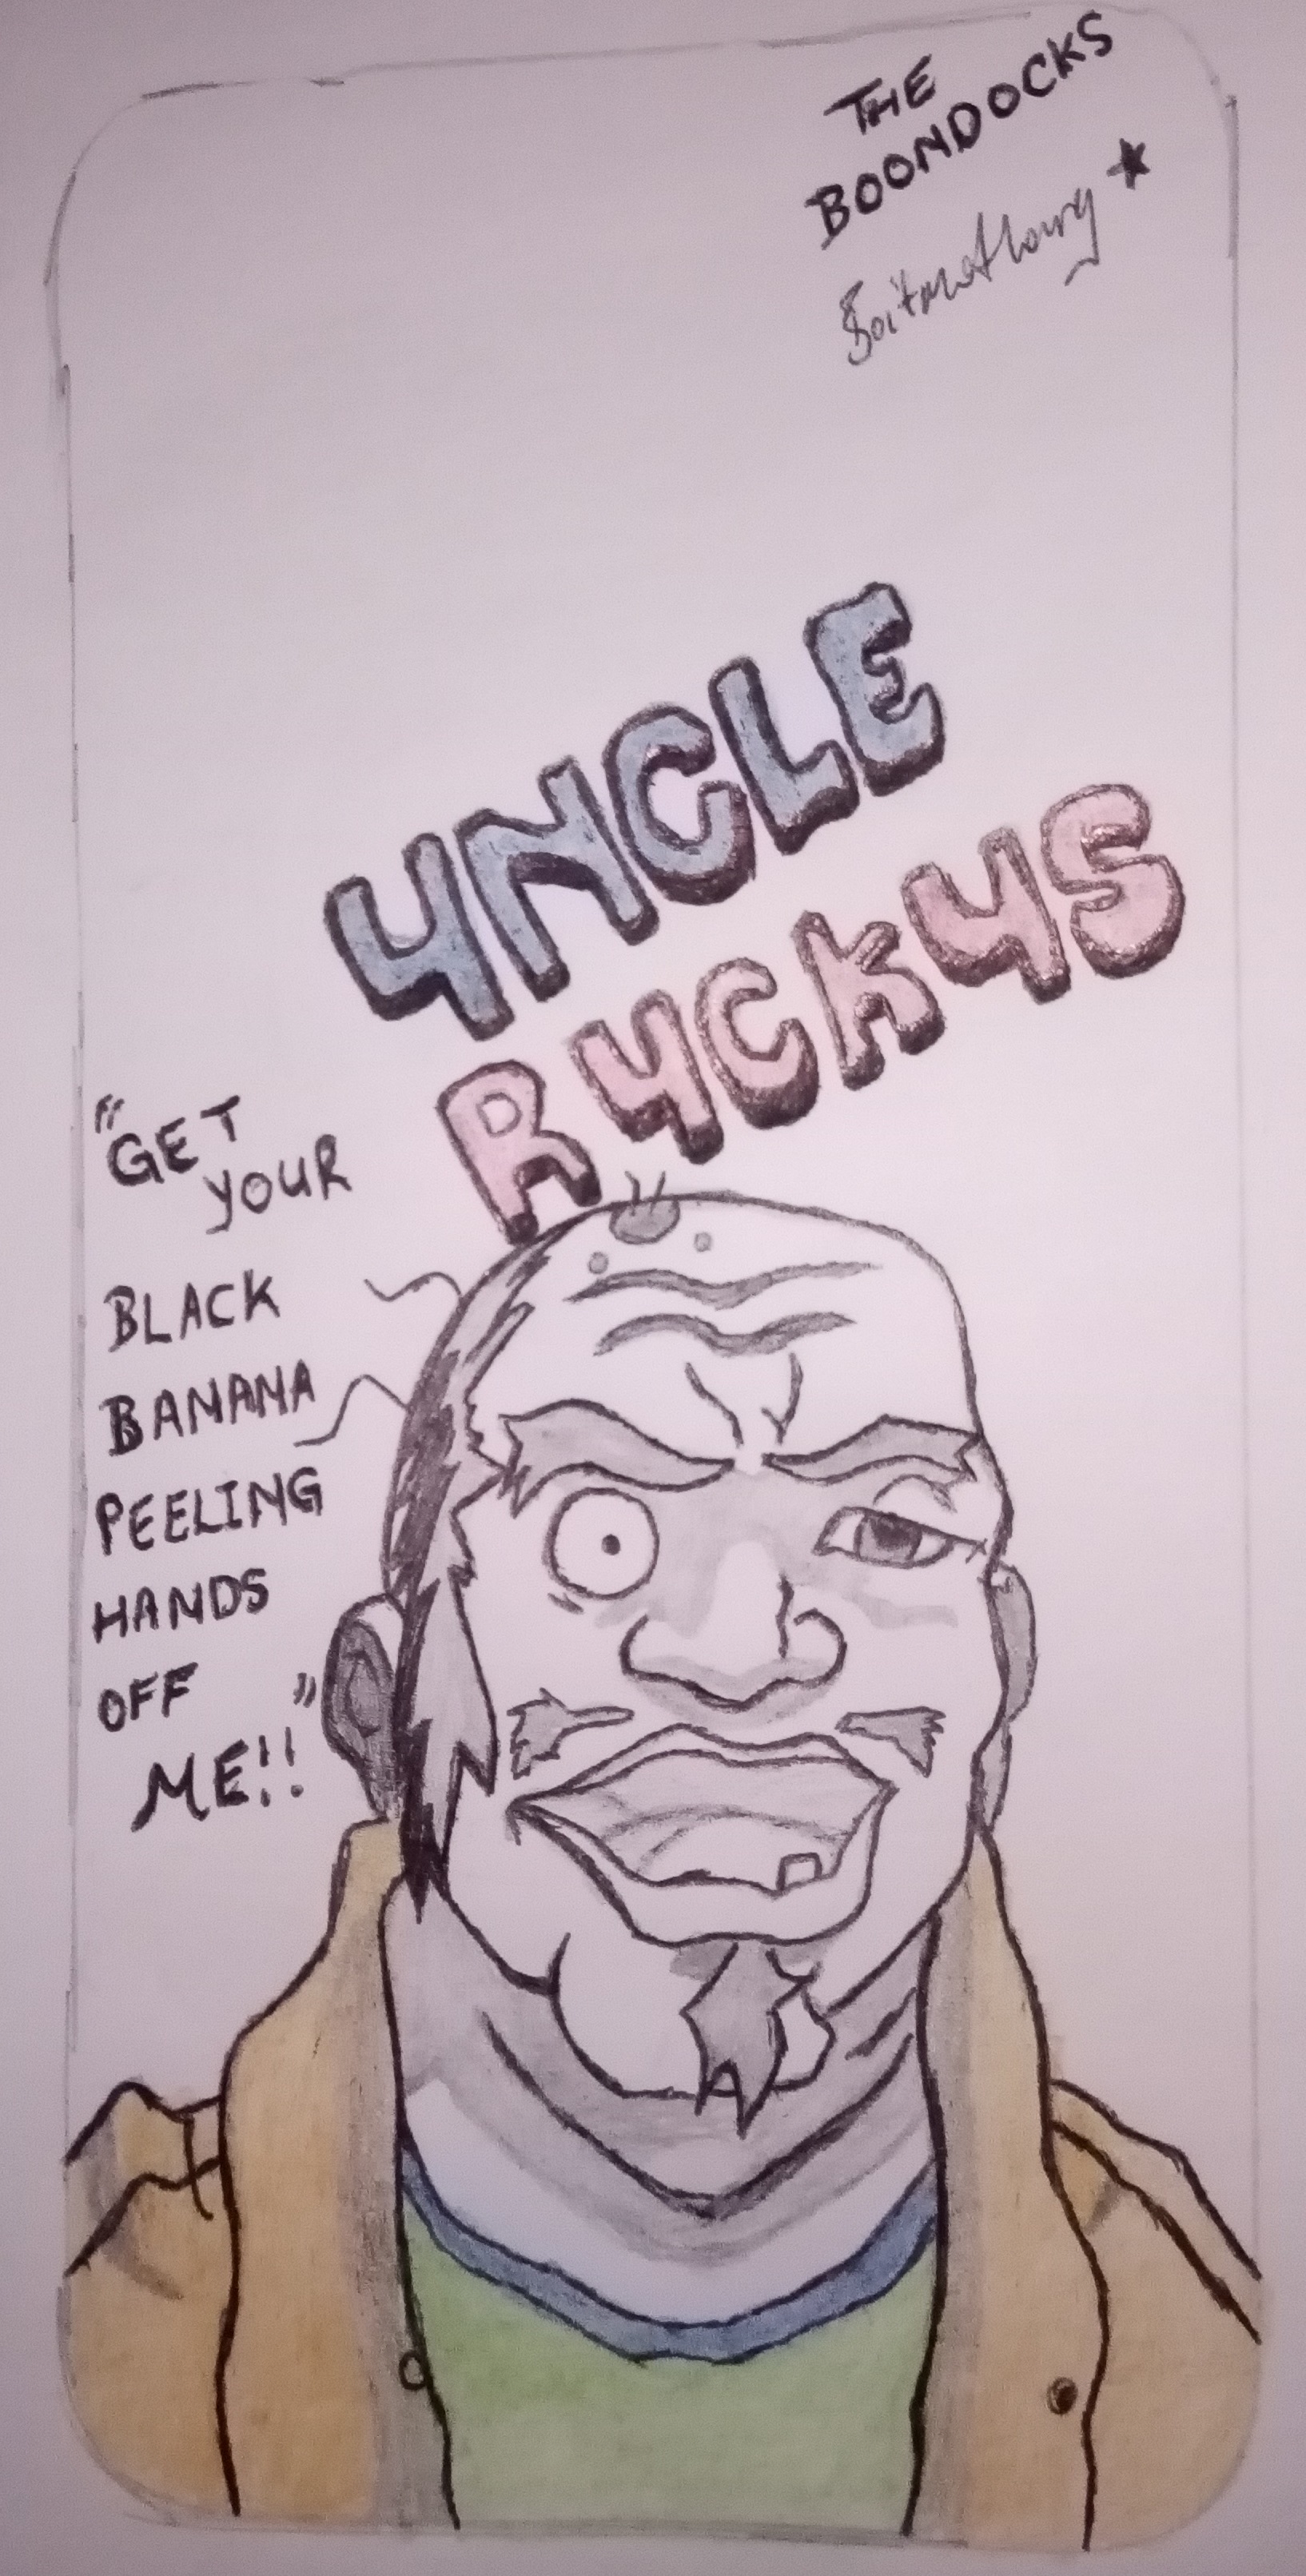 THE
BOONDOCKS
UNCLE
RUCKUS
"GET
YOUR
BLACK
BANANA
PEELING
HANDS
OFF
ME!!"